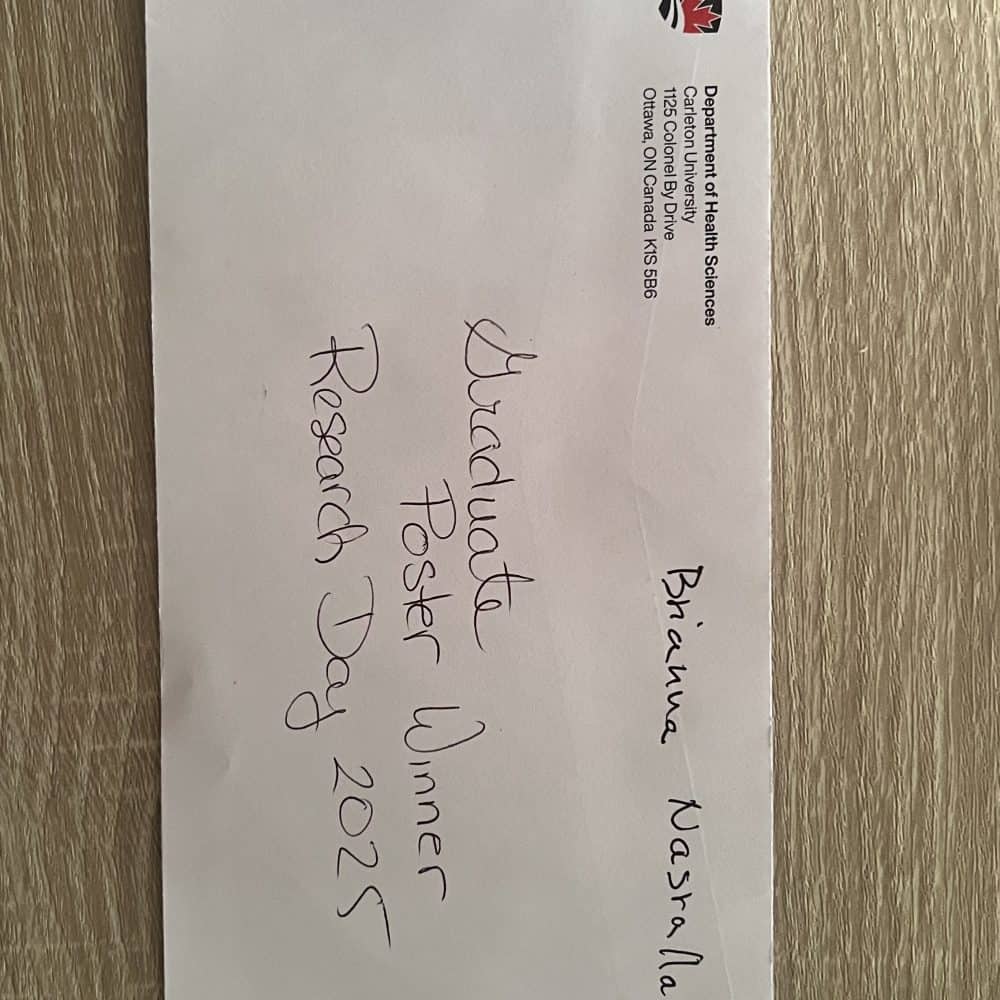 Department of Health Sciences
Carleton University
1125 Colonel By Drive
Ottawa, ON Canada K1S 5B6
Brianna Nasralla
Graduate
Poster Winner
Research Day 2025